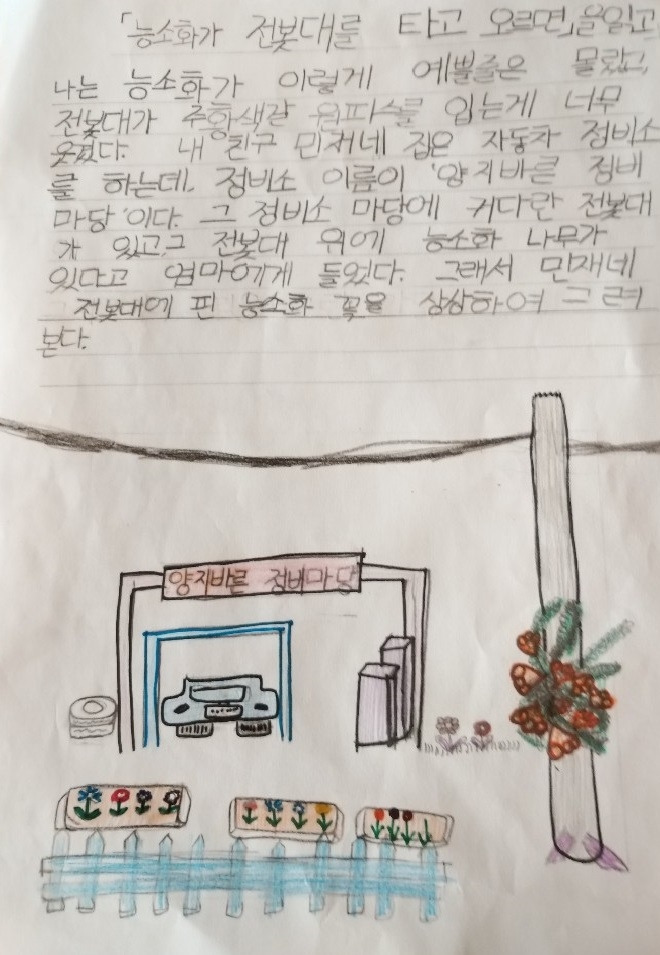 「능소화가 전봇대를 타고 오르면」을읽고
나는 능소화가 이렇게 예쁠줄은 몰랐고,
전봇대가 주황색깔 원피스를 입는게 너무
웃겼다. 내 친구 민재네 집은 자동차 정비소
를 하는데, 정비소 이름이 '양지바른 정비
마당'이다. 그 정비소 마당에 커다란 전봇대
가 있고,그 전봇대 위에 능소화 나무가
있다고 엄마에게 들었다. 그래서 민재네
전봇대에 핀 능소화 꽃을 상상하여 그려
본다.
양지바른 정비마당